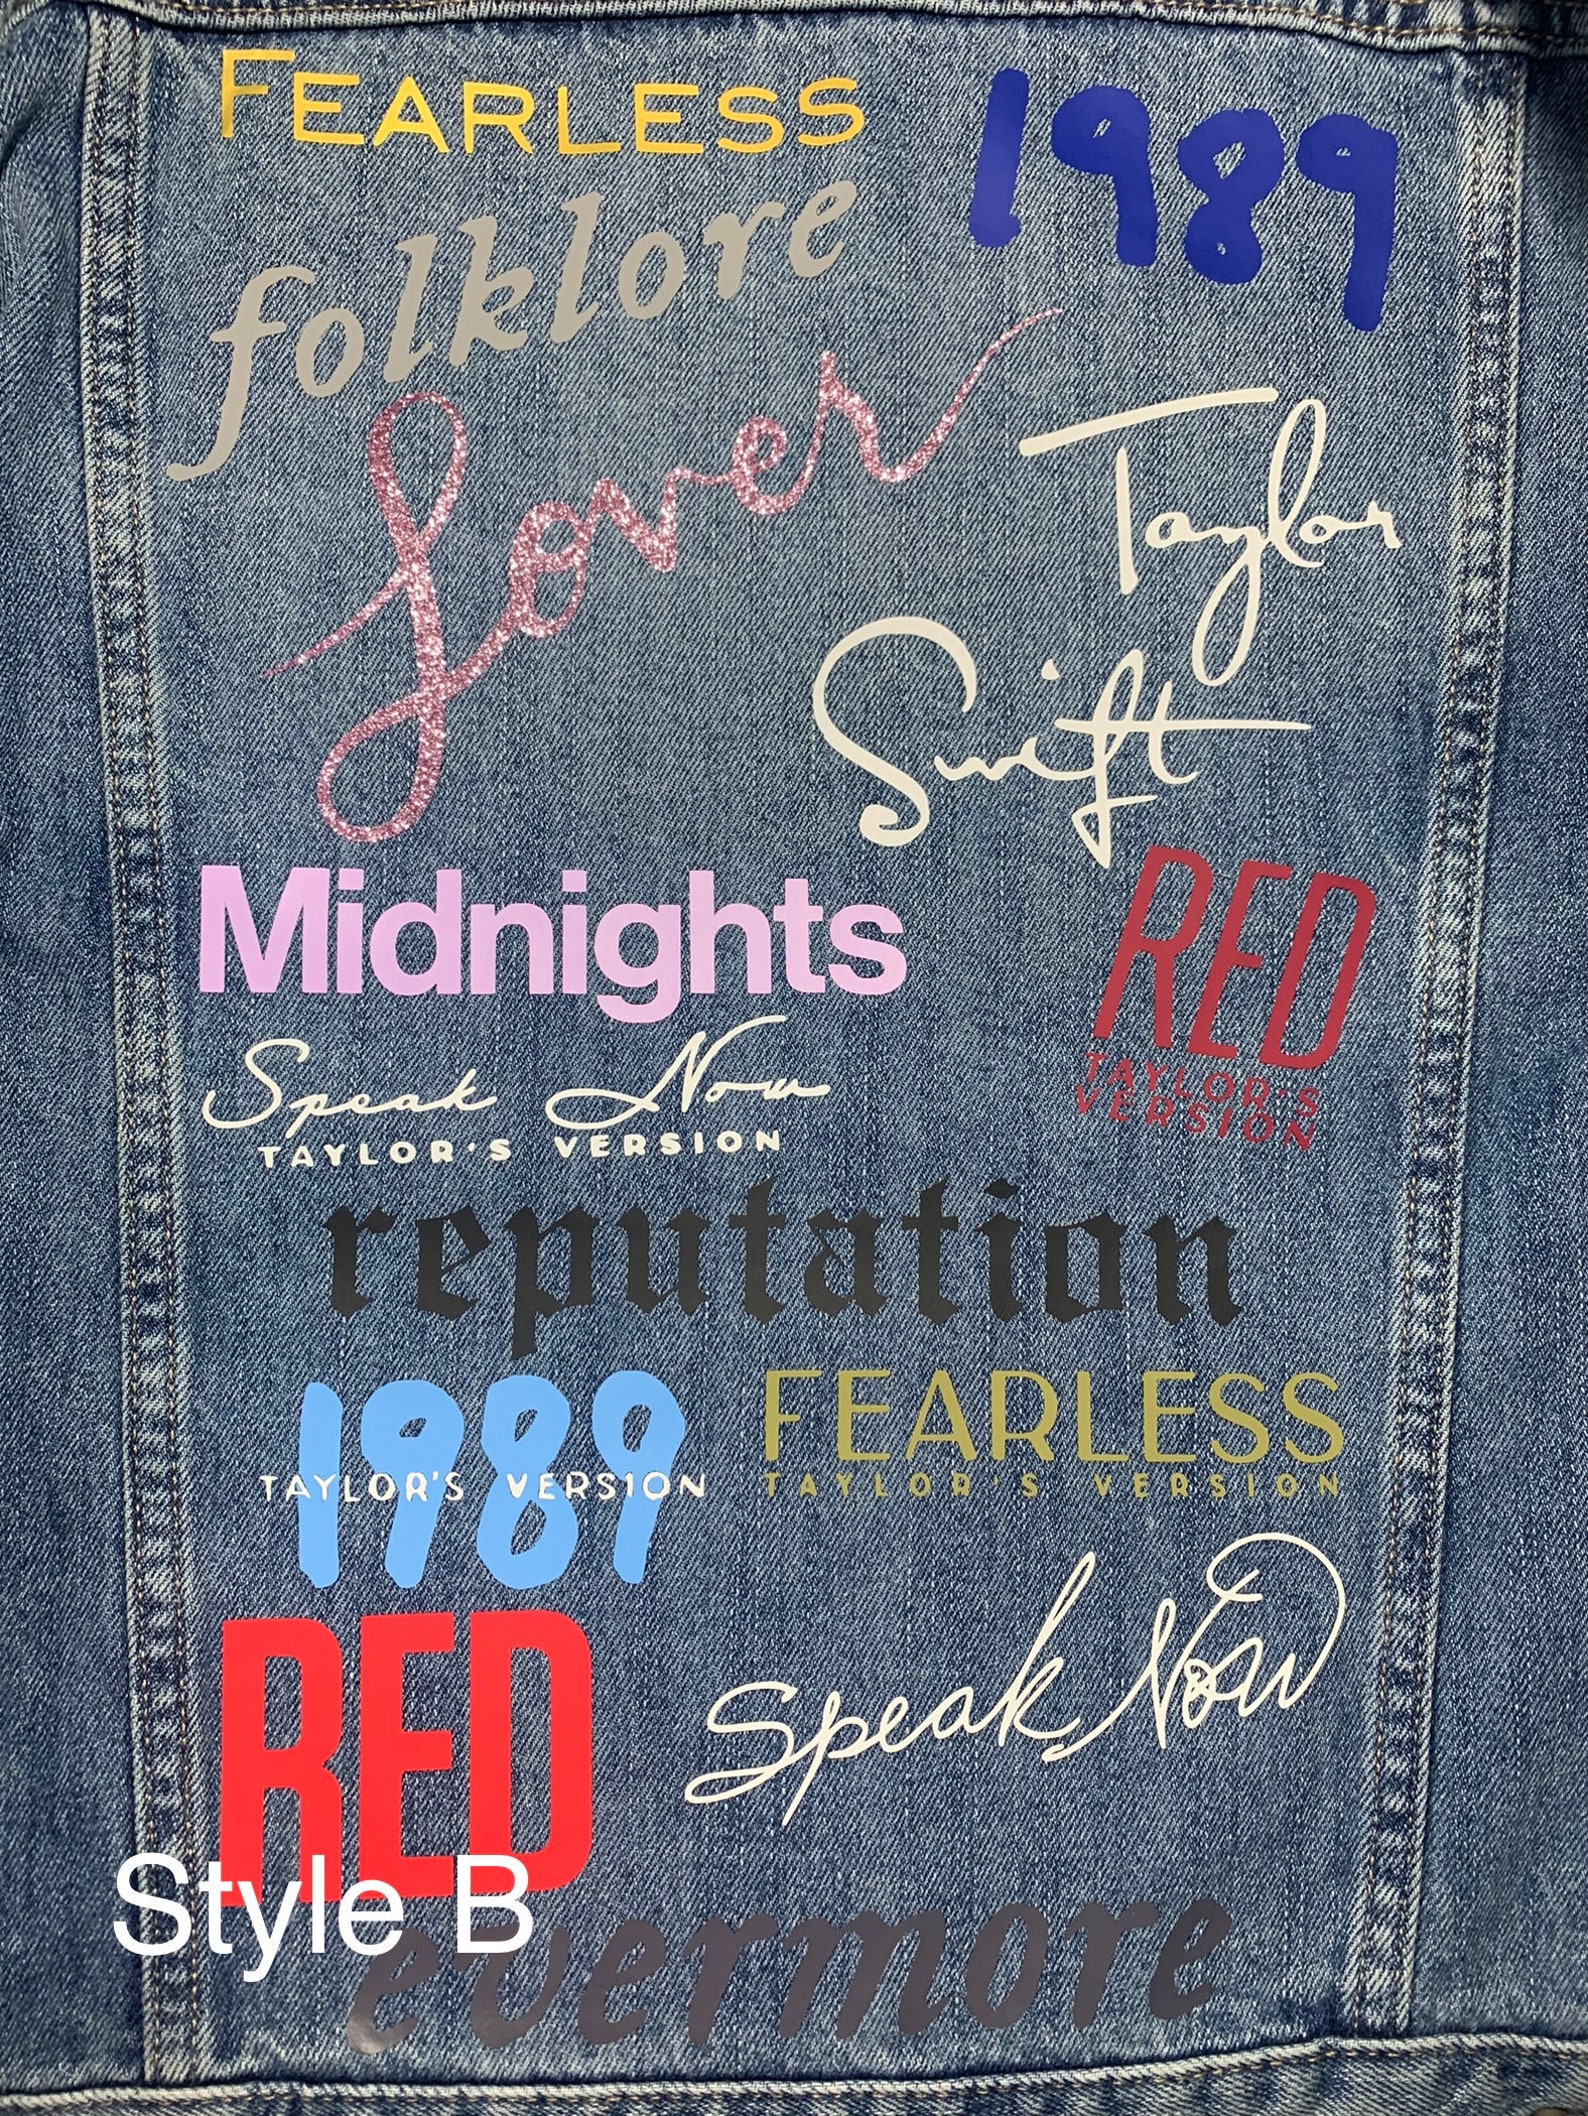 FEARLESS
1989
folklore
Lover
Taylor
Swift
Midnights
RED
TAYLOR'S
VERSION
Speak Now
TAYLOR'S VERSION
reputation
1989
TAYLOR'S VERSION
FEARLESS
TAYLOR'S VERSION
RED
Speak Now
Style B
evermore